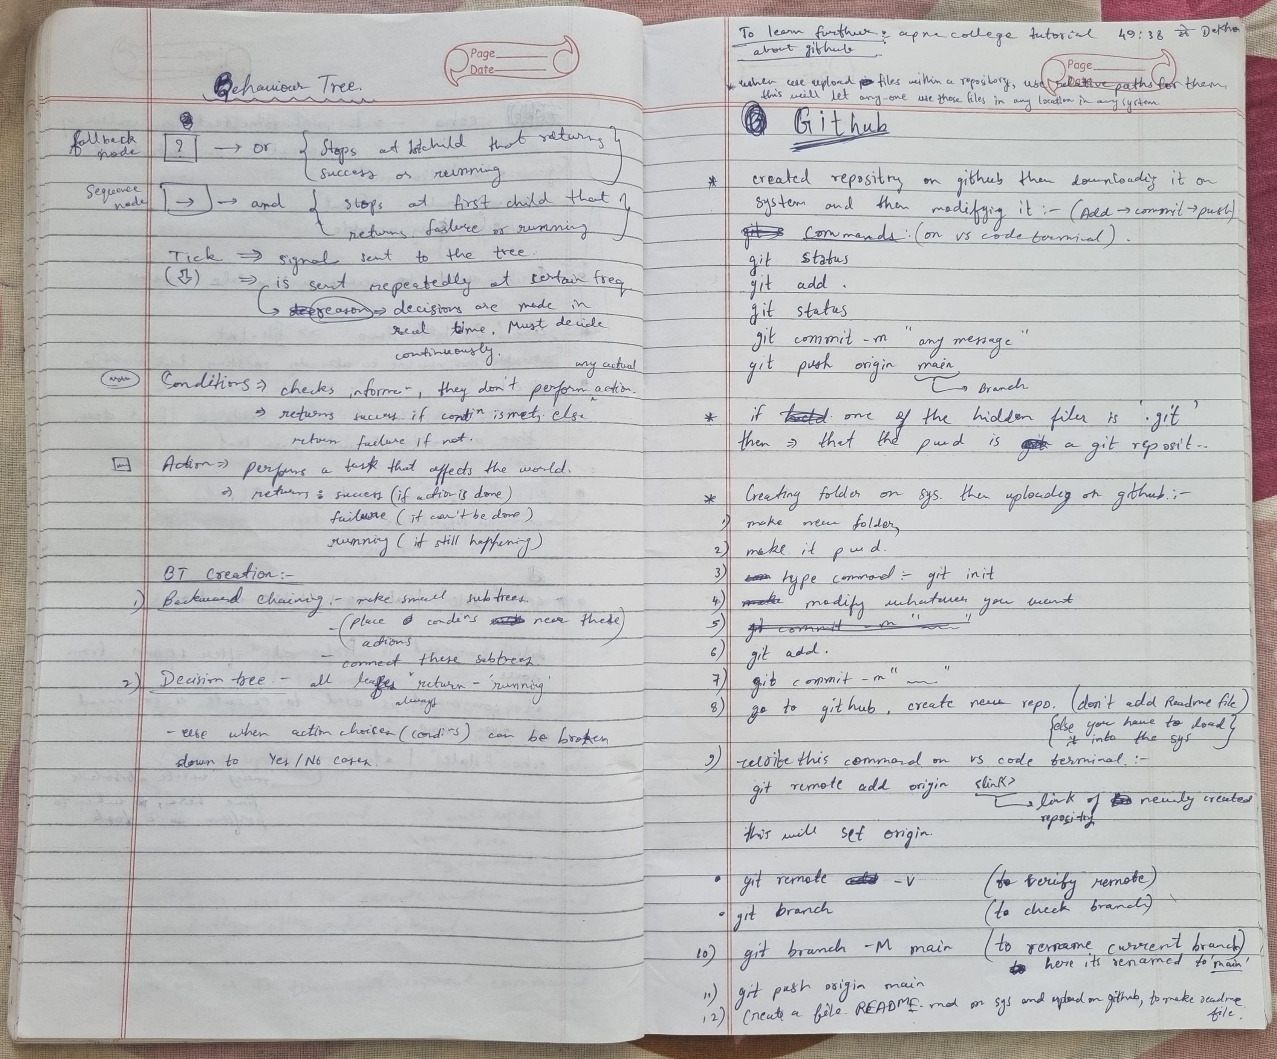 Page
Date
Behaviour Tree.
fallback node
?
→ or { stops at 1st child that returns
success or running }
Sequence node
→
→ and { stops at first child that
returns failure or running }
Tick ⇒ signal sent to the tree.
(⇩) ⇒ is sent repeatedly at certain freq
↳ reason ⇒ decisions are made in
real time. Must decide
continuously.
any actual
Conditions ⇒ checks informⁿ, they don't perform ^ action.
⇒ returns succes if condiⁿ is met, else
return failure if not.
Action ⇒ performs a task that affects the world.
⇒ returns : success (if action is done)
failure (if can't be done)
running (if still happening)
BT Creation:-
1) Backward chaining :- make small subtrees.
- (place condiⁿs near these)
actions
- connect these subtrees.
2) Decision tree :- all leafs return - 'running'
always
- use when action choices (condiⁿs) can be broken
down to Yes/No cases.
To learn further : apna college tutorial 49:38 से Dekhna
about github
Page
Date
* when we upload files within a repository, use relative paths for them,
this will let any-one use those files in any location in any system.
Github
* created repositry on github then downloadig it on
system and then modifyig it :- (Add → commit → push)
Commands : (on vs code terminal).
git status
git add .
git status
git commit -m "any message"
git push origin main
↳ Branch
* if one of the hidden files is '.git'
then ⇒ that the pwd is a git reposit..
* Creating folder on sys. then uploadig on github :-
1) make new folder,
2) make it pwd.
3) type command :- git init
4) modify whatever you want
5) git commit -m " "
6) git add .
7) git commit -m " "
8) go to github, create new repo. (don't add Readme file)
{else you have to load}
it into the sys
9) write this command on vs code terminal :-
git remote add origin <link>
↳ link of newly created
repositry
this will set origin.
• git remote -v (to verify remote)
• git branch (to check branch)
10) git branch -M main (to rename current branch)
here its renamed to 'main'
11) git push origin main
12) Create a file README.md on sys and upload on github, to make readme
file.